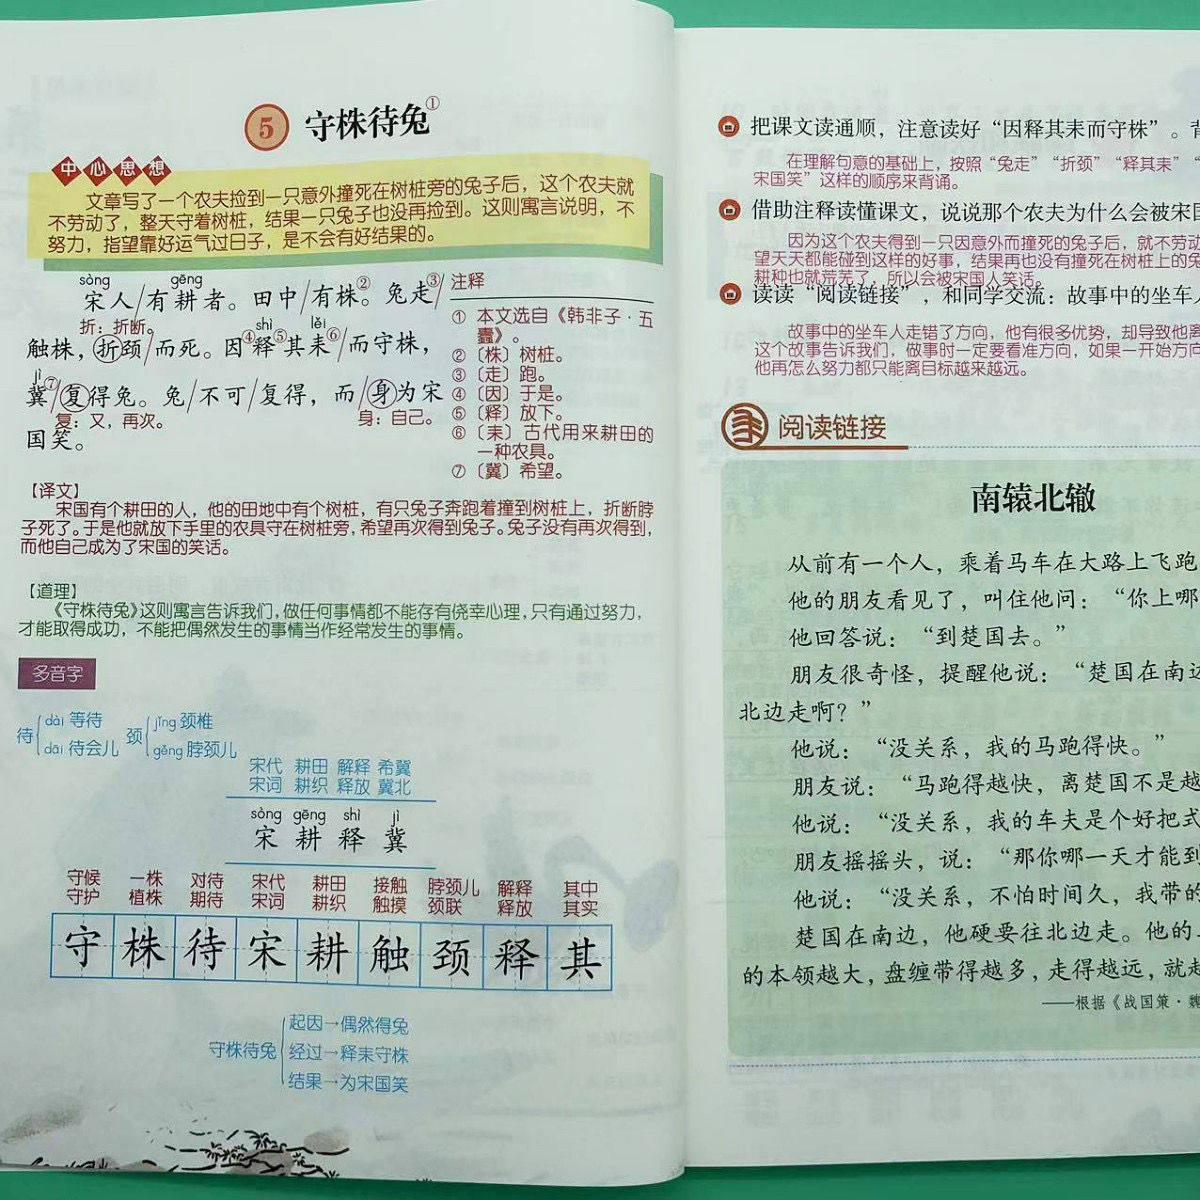 5 守株待兔①
中心思想
文章写了一个农夫捡到一只意外撞死在树桩旁的兔子后，这个农夫就
不劳动了，整天守着树桩，结果一只兔子也没再捡到。这则寓言说明，不
努力，指望靠好运气过日子，是不会有好结果的。
sòng gēng
宋人/有耕者。田中/有株②。兔走③/
折：折断。 shì lěi
触株，折颈/而死。因④释⑤其耒⑥/而守株，
jì
冀⑦/复得兔。兔/不可/复得，而/身为宋
复：又，再次。 身：自己。
国笑。
注释
① 本文选自《韩非子·五
蠹》。
②〔株〕树桩。
③〔走〕跑。
④〔因〕于是。
⑤〔释〕放下。
⑥〔耒〕古代用来耕田的
一种农具。
⑦〔冀〕希望。
【译文】
宋国有个耕田的人，他的田地中有个树桩，有只兔子奔跑着撞到树桩上，折断脖
子死了。于是他就放下手里的农具守在树桩旁，希望再次得到兔子。兔子没有再次得到，
而他自己成为了宋国的笑话。
【道理】
《守株待兔》这则寓言告诉我们，做任何事情都不能存有侥幸心理，只有通过努力，
才能取得成功，不能把偶然发生的事情当作经常发生的事情。
多音字
待 dài 等待
dāi 待会儿
颈 jǐng 颈椎
gěng 脖颈儿
宋代 耕田 解释 希冀
宋词 耕织 释放 冀北
sòng gēng shì jì
宋 耕 释 冀
守候 一株 对待 宋代 耕田 接触 脖颈儿 解释 其中
守护 植株 期待 宋词 耕织 触摸 颈联 释放 其实
守 株 待 宋 耕 触 颈 释 其
守株待兔
起因→偶然得兔
经过→释耒守株
结果→为宋国笑
把课文读通顺，注意读好“因释其耒而守株”。背
在理解句意的基础上，按照“兔走”“折颈”“释其耒”“
宋国笑”这样的顺序来背诵。
借助注释读懂课文，说说那个农夫为什么会被宋国
因为这个农夫得到一只因意外而撞死的兔子后，就不劳动
望天天都能碰到这样的好事，结果再也没有撞死在树桩上的兔
耕种也就荒芜了，所以会被宋国人笑话。
读读“阅读链接”，和同学交流：故事中的坐车人
故事中的坐车人走错了方向，他有很多优势，却导致他离
这个故事告诉我们，做事时一定要看准方向，如果一开始方向
他再怎么努力都只能离目标越来越远。
阅读链接
南辕北辙
从前有一个人，乘着马车在大路上飞跑
他的朋友看见了，叫住他问：“你上哪
他回答说：“到楚国去。”
朋友很奇怪，提醒他说：“楚国在南边
北边走啊？”
他说：“没关系，我的马跑得快。”
朋友说：“马跑得越快，离楚国不是越
他说：“没关系，我的车夫是个好把式
朋友摇摇头，说：“那你哪一天才能到
他说：“没关系，不怕时间久，我带的
楚国在南边，他硬要往北边走。他的
的本领越大，盘缠带得越多，走得越远，就越
——根据《战国策·魏